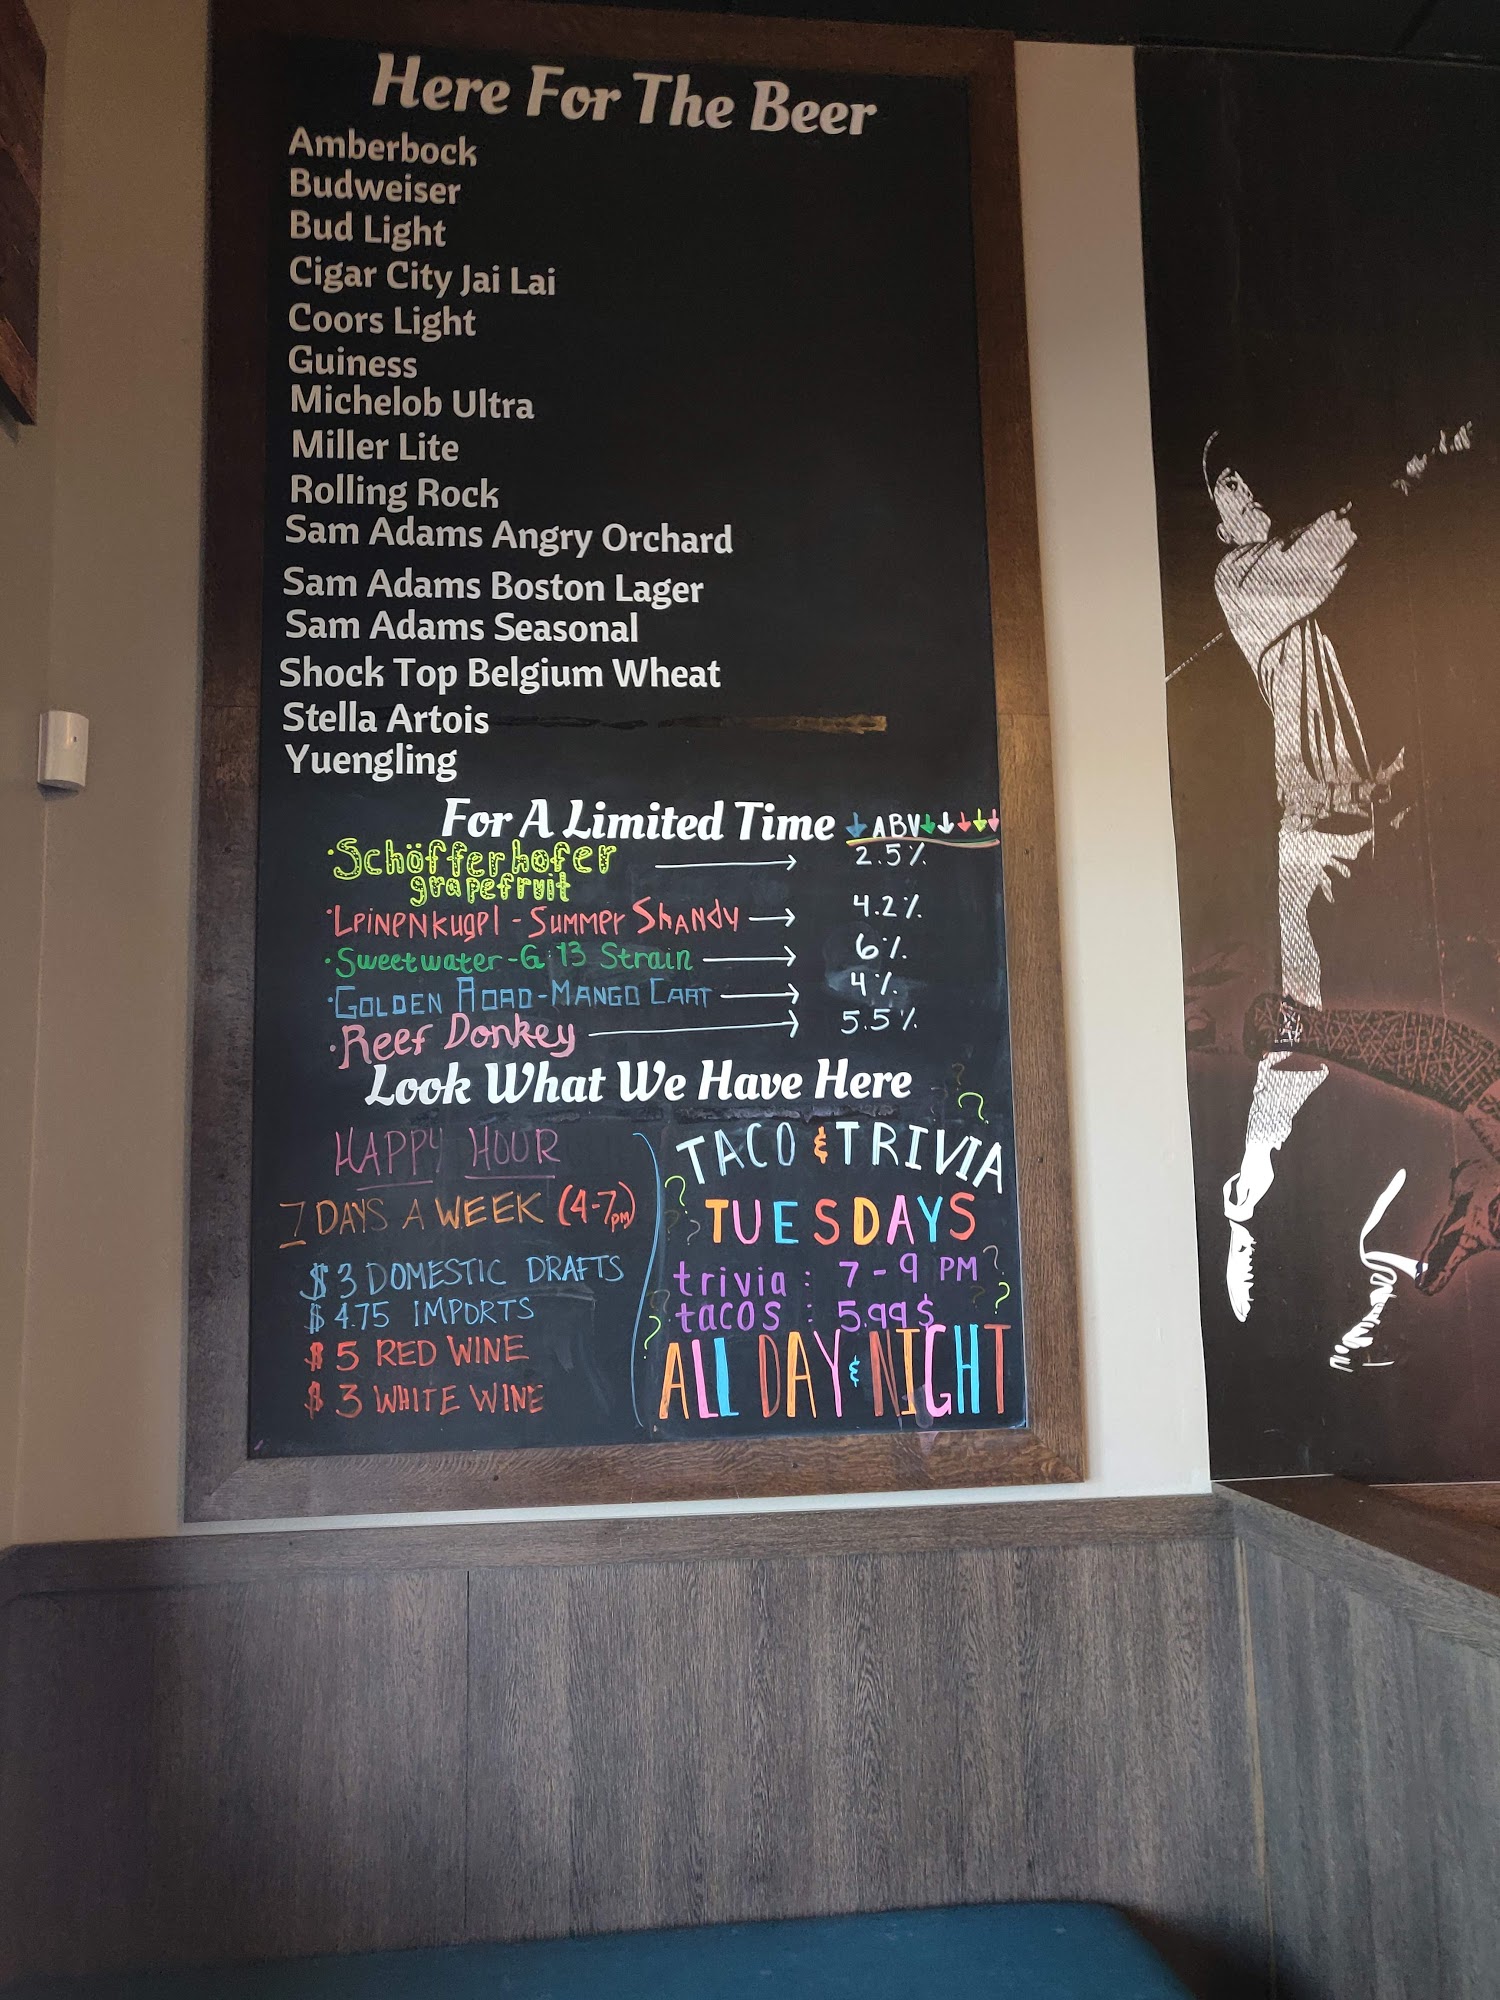 Here For The Beer
Amberbock
Budweiser
Bud Light
Cigar City Jai Lai
Coors Light
Guiness
Michelob Ultra
Miller Lite
Rolling Rock
Sam Adams Angry Orchard
Sam Adams Boston Lager
Sam Adams Seasonal
Shock Top Belgium Wheat
Stella Artois
Yuengling
For A Limited Time ABV
Schöfferhofer 2.5%
grapefruit
Leinenkugel - Summer Shandy 4.2%
Sweetwater - G 13 Strain 6%
GOLDEN ROAD - MANGO CART 4%
Reef Donkey 5.5%
Look What We Have Here
HAPPY HOUR
7 DAYS A WEEK (4-7pm)
$3 DOMESTIC DRAFTS
$4.75 IMPORTS
$5 RED WINE
$3 WHITE WINE
TACO & TRIVIA
TUESDAYS
trivia : 7-9 PM
tacos : 5.99$
ALL DAY & NIGHT